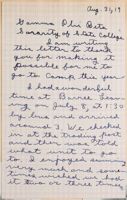 Aug. 21, 19
Gamma Phi Beta
Sorority of State College
I am writing
this letter to thank
you for making it
possible for me to
go to Camp this year
I had a wonderful
time at Barree
on July 9 at 1:30
by bus and arrived
around 3. We checked
in at the travel post
and then was told
what unit to go
to. I enjoyed swimming
very much and some
times wished we had
it two or three times